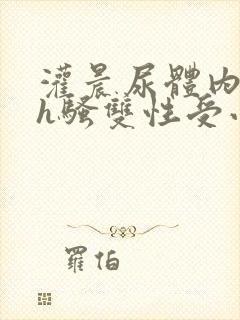 灌晨尿體內
h騷雙性受
羅伯